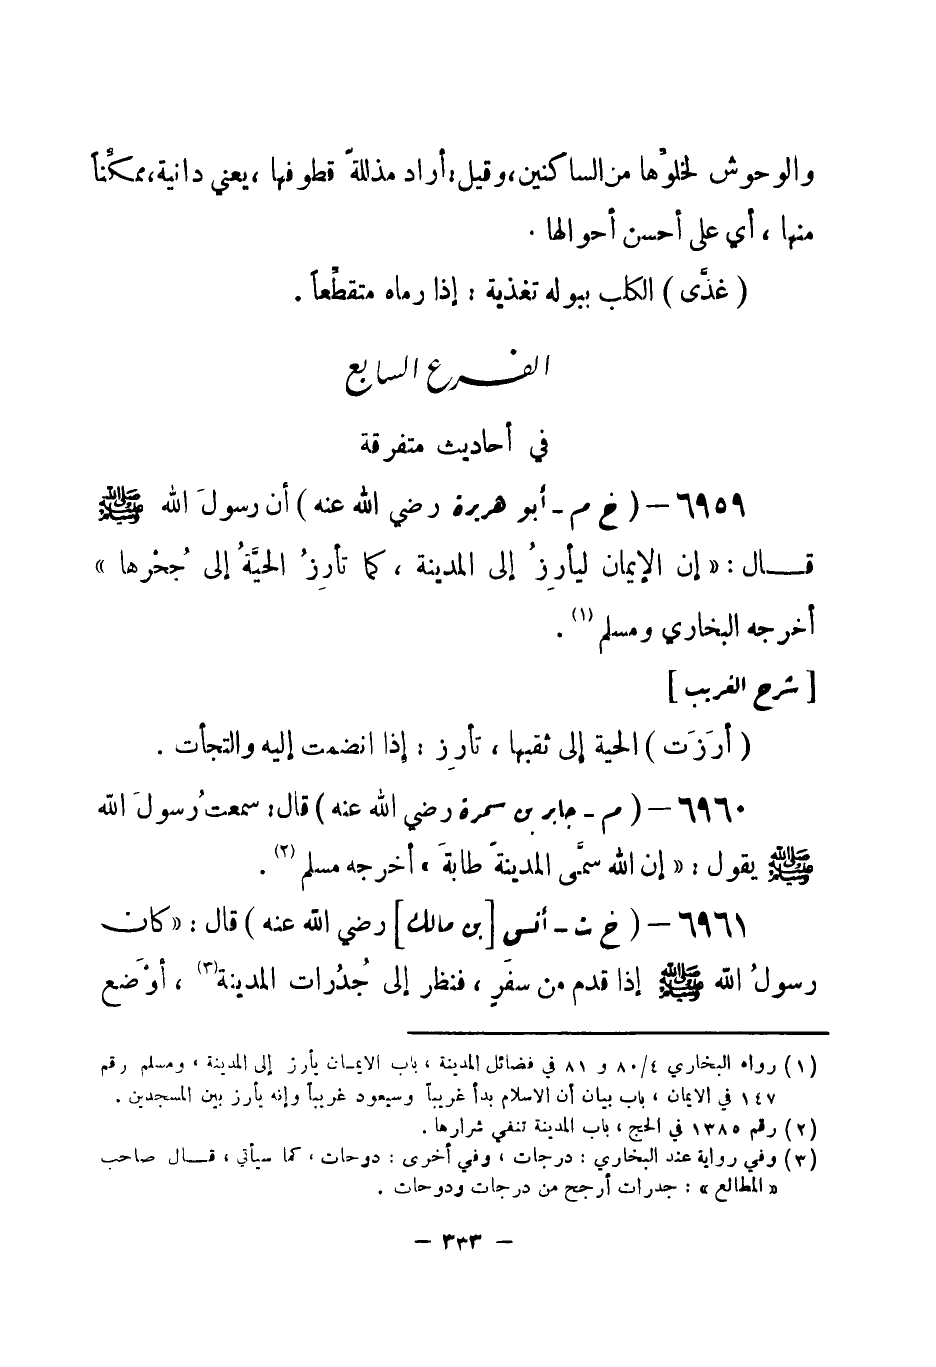 والوحوش لخلوِّها من الساكنين، وقيل: أراد مذللةً قطوفها، يعني دانية، ممكَّناً
منها ، أي على أحسن أحوالها .
( غذَّى ) الكلب ببوله تغذية : إذا رماه متقطِّعاً .
الفرع السابع
في أحاديث متفرقة
٦٩٥٩ – ( خ م - أبو هريرة رضي الله عنه ) أن رسولَ الله ﷺ
قـــال : « إن الإيمان ليأرِزُ إلى المدينة ، كما تأرِزُ الحيَّةُ إلى جُحْرها »
أخرجه البخاري ومسلم (١) .
[ شرح الغريب ]
( أرَزَت ) الحية إلى ثقبها ، تأرِز : إذا انضمت إليه والتجأت .
٦٩٦٠ – ( م - جابر بن سمرة رضي الله عنه ) قال: سمعتُ رسولَ الله
ﷺ يقول : « إن الله سمَّى المدينةَ طابةَ » أخرجه مسلم (٢) .
٦٩٦١ – ( خ ت - أنس [بن مالك] رضي الله عنه ) قال : «كان
رسولُ الله ﷺ إذا قدم من سفَرٍ ، فنظر إلى جُدُرات المدينة(٣) ، أوْضَع
(١) رواه البخاري ٤/٨٠ و ٨١ في فضائل المدينة ، باب الايمـان يأرز إلى المدينة ، ومسلم رقم
١٤٧ في الايمان ، باب بيان أن الاسلام بدأ غريباً وسيعود غريباً وإنه يأرز بين المسجدين .
(٢) رقم ١٣٨٥ في الحج ، باب المدينة تنفي شرارها .
(٣) وفي رواية عند البخاري : درجات ، وفي أخرى : دوحات ، كما سيأتي ، قــال صاحب
« المطالع » : جدرات أرجح من درجات ودوحات .
– ٣٣٣ –